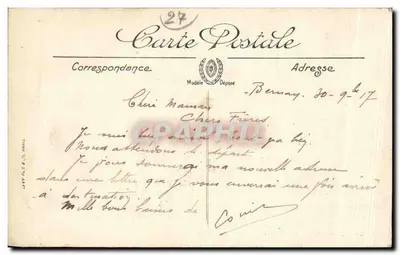 27
Carte Postale
Correspondance
Adresse
Modèle Déposé
Bernay, 30-9-17
Chère Maman
Chers Frères
Je suis
Nous attendons le départ
Je vous donnerai ma nouvelle adresse
dans une lettre que je vous enverrai une fois arrivé
à destination
Mille bons baisers de